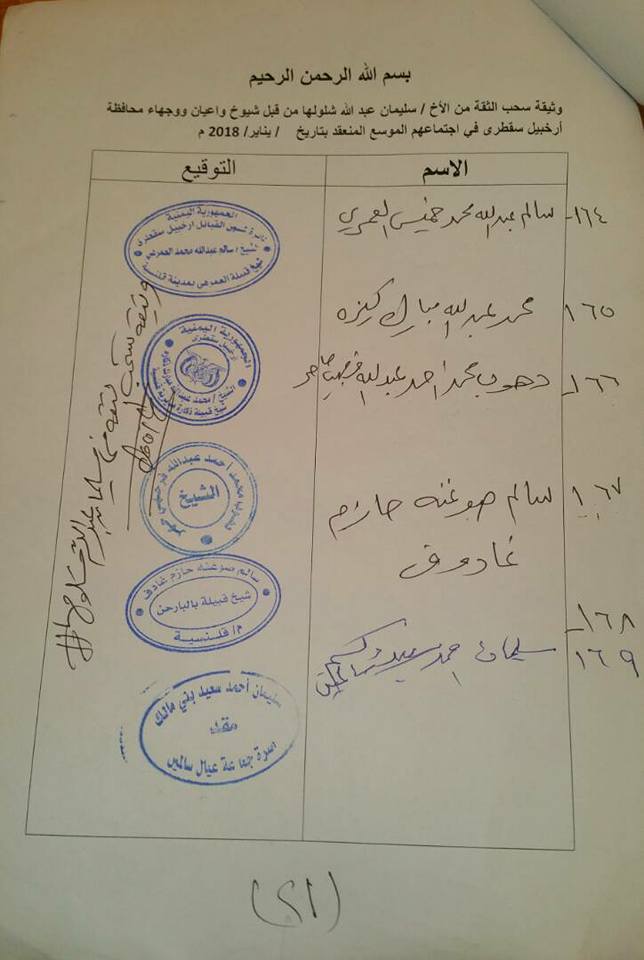 بسم الله الرحمن الرحيم
وثيقة سحب الثقة من الأخ / سليمان عبد الله شلولها من قبل شيوخ واعيان ووجهاء محافظة
أرخبيل سقطرى في اجتماعهم الموسع المنعقد بتاريخ / يناير/ 2018 م
الاسم
التوقيع
١٦٤- سالم عبدالله محمد خميس العمري
الجمهورية اليمنية
الشيخ/ سالم عبدالله محمد العمرمي
شيخ قبيلة العمرهي بمدينة قلنسية
١٦٥ محمد عبدالله مبارك كيزه
الجمهورية اليمنية
أرخبيل سقطرى
١٦٦- دهوب محمد احمد عبدالله
محمد أحمد عبدالله
الشيخ
١٦٧ سالم صوغنه حازم
غادوف
سالم صوغنه حازم غادف
شيخ قبيلة بالبارحن
م/ قلنسية
١٦٨-
١٦٩ سليمان احمد سعيد
سليمان أحمد سعيد بني مالك
مقدم
اسرة جماعة عيال سالمين
وثيقة سحب
الثقة من سليمان عبدالله شلولها
(٢١)